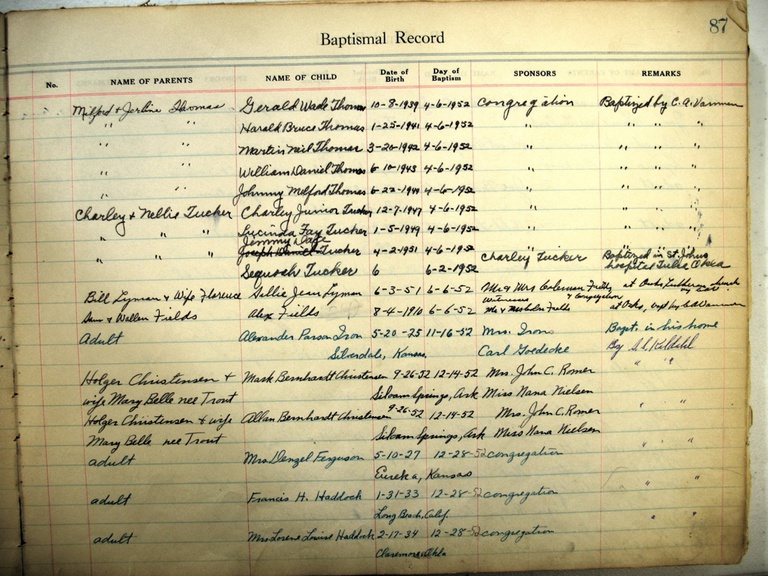 87
Baptismal Record
No. NAME OF PARENTS NAME OF CHILD Date of Birth Day of Baptism SPONSORS REMARKS
Milford & Thomas Gerald Wade Thomas 10-8-1939 4-6-1952 Congregation Baptized by C. A.
" " Harold Bruce Thomas 1-25-1941 4-6-1952 " " " "
" " Martin Neil Thomas 3-20-1942 4-6-1952 " " " "
" " William Daniel Thomas 6-10-1943 4-6-1952 " " " "
" " Johnny Milford Thomas 6-22-1944 4-6-1952 " " " "
Charley & Nellie Tucker Charley Junior Tucker 12-7-1947 4-6-1952 " " " "
" " " Lucinda Fay Tucker 1-5-1949 4-6-1952 " " " "
Jimmy Dale
" " " Joseph Daniel Tucker 4-2-1951 4-6-1952 " " " "
Sequoah Tucker 6 6-2-1952 Charley Tucker Baptized in St. Johns
hospital Tulsa Okla
Bill Lyman & Wife Florence Nellie Jean Lyman 6-3-51 6-6-52 Mr & Mrs Coleman at Oaks Lutheran
Witnesses & Congregation
& Fields Alex Fields 8-4-1910 6-6-52 Mr & at Oaks,
adult Alexander Parson Iron 5-20-75 11-16-52 Mrs. Iron Bapt. in his home
Silverdale, Kansas Carl Goedecke By
Holger Christensen & Mark Bernhardt Christensen 9-26-52 12-14-52 Mrs. John C. Romer " "
wife Mary Belle nee Trout Siloam Springs, Ark Miss Nana Nielsen
Holger Christensen & wife Allan Bernhardt Christensen 9-26-52 12-14-52 Mrs. John C. Romer " "
Mary Belle nee Trout Siloam Springs, Ark Miss Nana Nielsen
adult Mrs Denzel Ferguson 5-10-27 12-28-52 congregation " "
Eureka, Kansas
adult Francis H. Haddock 1-31-33 12-28-52 congregation " "
Long Beach, Calif.
adult Mrs Lorene Louise Haddock 2-17-34 12-28-52 congregation " "
Claremore, Okla